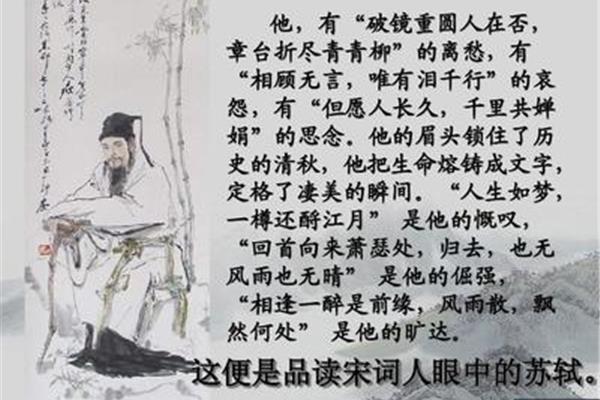 他，有“破镜重圆人在否，
章台折尽青青柳”的离愁，有
“相顾无言，唯有泪千行”的哀
怨，有“但愿人长久，千里共婵
娟”的思念。他的眉头锁住了历
史的清秋，他把生命熔铸成文字，
定格了凄美的瞬间。“人生如梦，
一樽还酹江月” 是他的慨叹，
“回首向来萧瑟处，归去，也无
风雨也无晴” 是他的倔强，
“相逢一醉是前缘，风雨散，飘
然何处” 是他的旷达。
这便是品读宋词人眼中的苏轼。